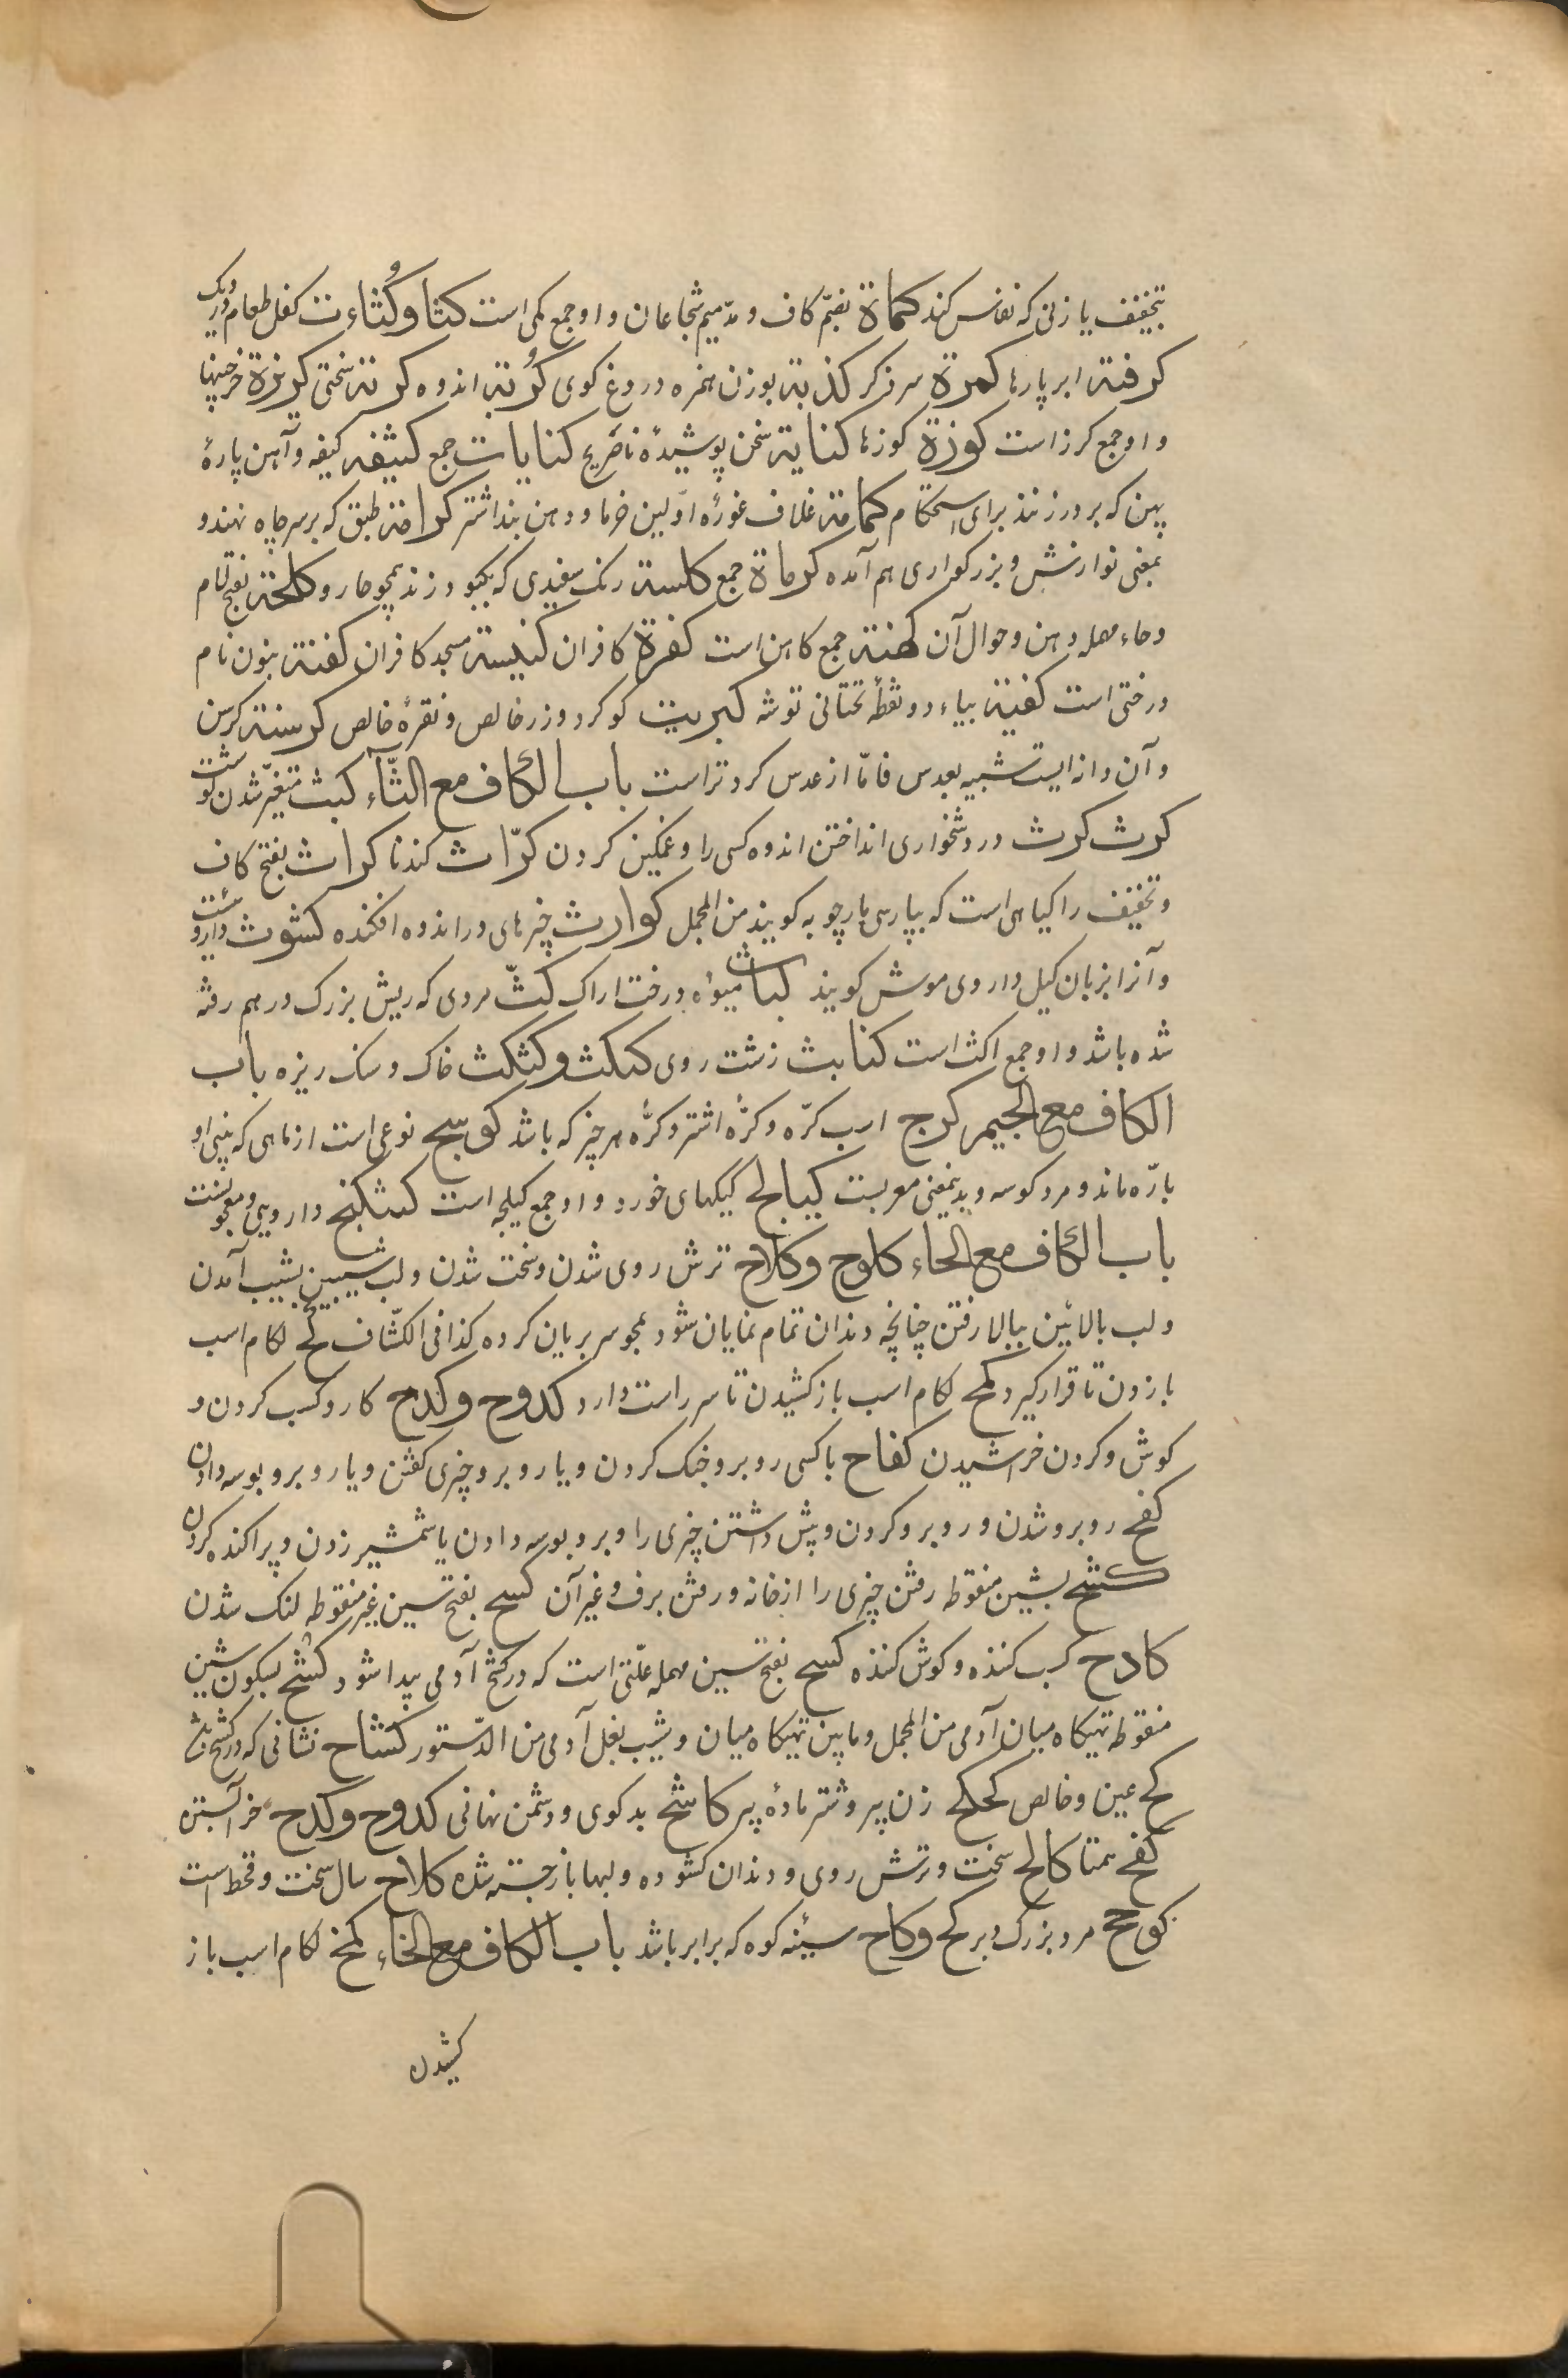 بتخفیف یا زنی که نفاس کند کماة بضمّ کاف و مدّ میم شجاعان و او جمع کمی است کثا وکثاءت کفل طعام و دیک
کرفتة ابر پارها کمرة سر ذکر کذبة بوزن همزه دروغ کوی کُربة اندوه کربة سختی کرزة خرجینها
و او جمع کرز است کوزة کوزها کنایة سخن پوشیدهٔ ناصریح کنایات جمع کثیفة کتیفه و آهن پارهٔ
پهن که بر در زنند برای استحکام کمامة غلاف غوزهٔ اوّلین خرما و دهن بند اشتر کرامة طبق که بر سر چاه نهند و
بمعنی نوازش و بزرکواری هم آمده کرماة جمع کلسة رنک سفیدی که بکبو د زند همچو حار و کلحة بفتح لام
و حاء مهمله دهن و حوال آن کهنة جمع کاهن است کفرة کافران کنیسة مسجد کافران کفنة بنون نام
درختی است کفیة بیاء دو نقطهٔ تحتانی توشه کبریت کوکرد و زر خالص و نقرهٔ خالص کرسنة کرسن
و آن دانه ایست شبیه بعدس فامّا از عدس کردتر است باب الکاف مع الثّاء کبث متغیّر شدن کوشت
کرث کرث در دشخواری انداختن اندوه کسی را و غمکین کردن کرّاث کندنا کراث بفتح کاف
و تخفیف را کیاهی است که بپارسی مارچوبه کویند من المجمل کوارث چیزهای در اندوه افکنده کشوث داروئیست
و آنرا بزبان کیل داروی موش کویند کباث میوهٔ درخت اراک کثّ مردی که ریش بزرک درهم رفته
شده باشد و او جمع اکث است کنابث زشت روی کثکث وکثکث خاک و سنک ریزه باب
الکاف مع الجیم کرج اسب کرّه و کرّهٔ اشتر و کرّهٔ هر چیز که باشد کوسج نوعی است از ماهی که بینی او
بارّه ماند و مرد کوسه و بدینمعنی معربست کیالج کیکهای خورد و او جمع کیلجه است کشکنج دارویی و معجونیست
باب الکاف مع الحاء کلوح وکلاح ترش روی شدن و سخت شدن و لب شیبین بشیب آمدن
و لب بالائین ببالا رفتن چنانچه دندان تمام نمایان شود همچو سر بریان کرده کذا فی الکشّاف کبح لکام اسب
باز زدن تا قرار کیرد کمح لکام اسب باز کشیدن تا سر راست دارد کدوح وکدح کار و کسب کردن و
کوش و کردن خراشیدن کفاح با کسی روبرو جنک کردن و یا روبرو چیزی کفتن و یا روبرو بوسه دادن
کفح روبرو شدن و روبرو کردن و پیش داشتن چیزی را و برو بوسه دادن یا شمشیر زدن و پراکنده کردن
کشح بشین منقوطه رفتن چیزی را از خانه و رفتن برف و غیر آن کسح بفتح سین غیر منقوطه لنک شدن
کادح کسب کننده و کوش کننده کسح بفتح سین مهمله علّتی است که در کشح آدمی پیدا شود کشح بسکون شین
منقوطه تهیکاه میان آدمی من المجمل و مابین تهیکاه میان و شیب بغل آدمی من الدّستور کشاح نشانی که در کشح باشد
کح عین و خالص کحکح زن پیر و شتر مادهٔ پیر کاشح بدکوی و دشمن نهانی کدوح وکدح خر آبستن
کفح همتا کالح سخت و ترش روی و دندان کشوده و لبها باز جسته شده کلاح سال سخت و قحط است
کوحح مرد بزرک و بر کح وکاح سینهٔ کوه که برابر باشد باب الکاف مع الخاء کمخ لکام اسب باز
کشیدن